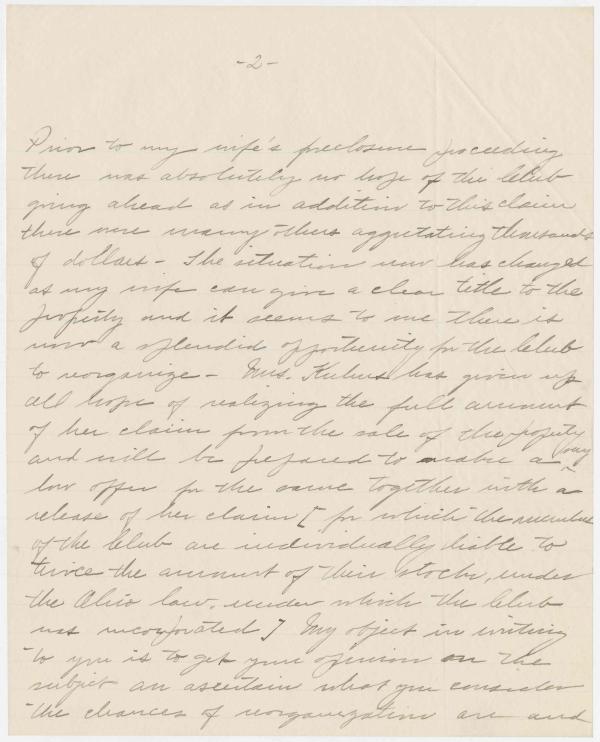 -2-
Prior to my wife's foreclosure proceeding
there was absolutely no hope of the Club
going ahead as in addition to this claim
there were many others aggretating thousands
of dollars - The situation now has changed
as my wife can give a clear title to the
property and it seems to me there is
now a splendid opportunity for the Club
to reorganize - Mrs. Kuhns has given up
all hope of realizing the full amount
of her claim from the sale of the property
and will be prepared to make a very
low offer for the same together with a
release of her claim [ for which the members
of the Club are individually liable to
twice the amount of their stocks, under
the Ohio law, under which the Club
was incorporated ] My object in writing
to you is to get your opinion on the
subject an ascertain what you consider
the chances of reorganization are and